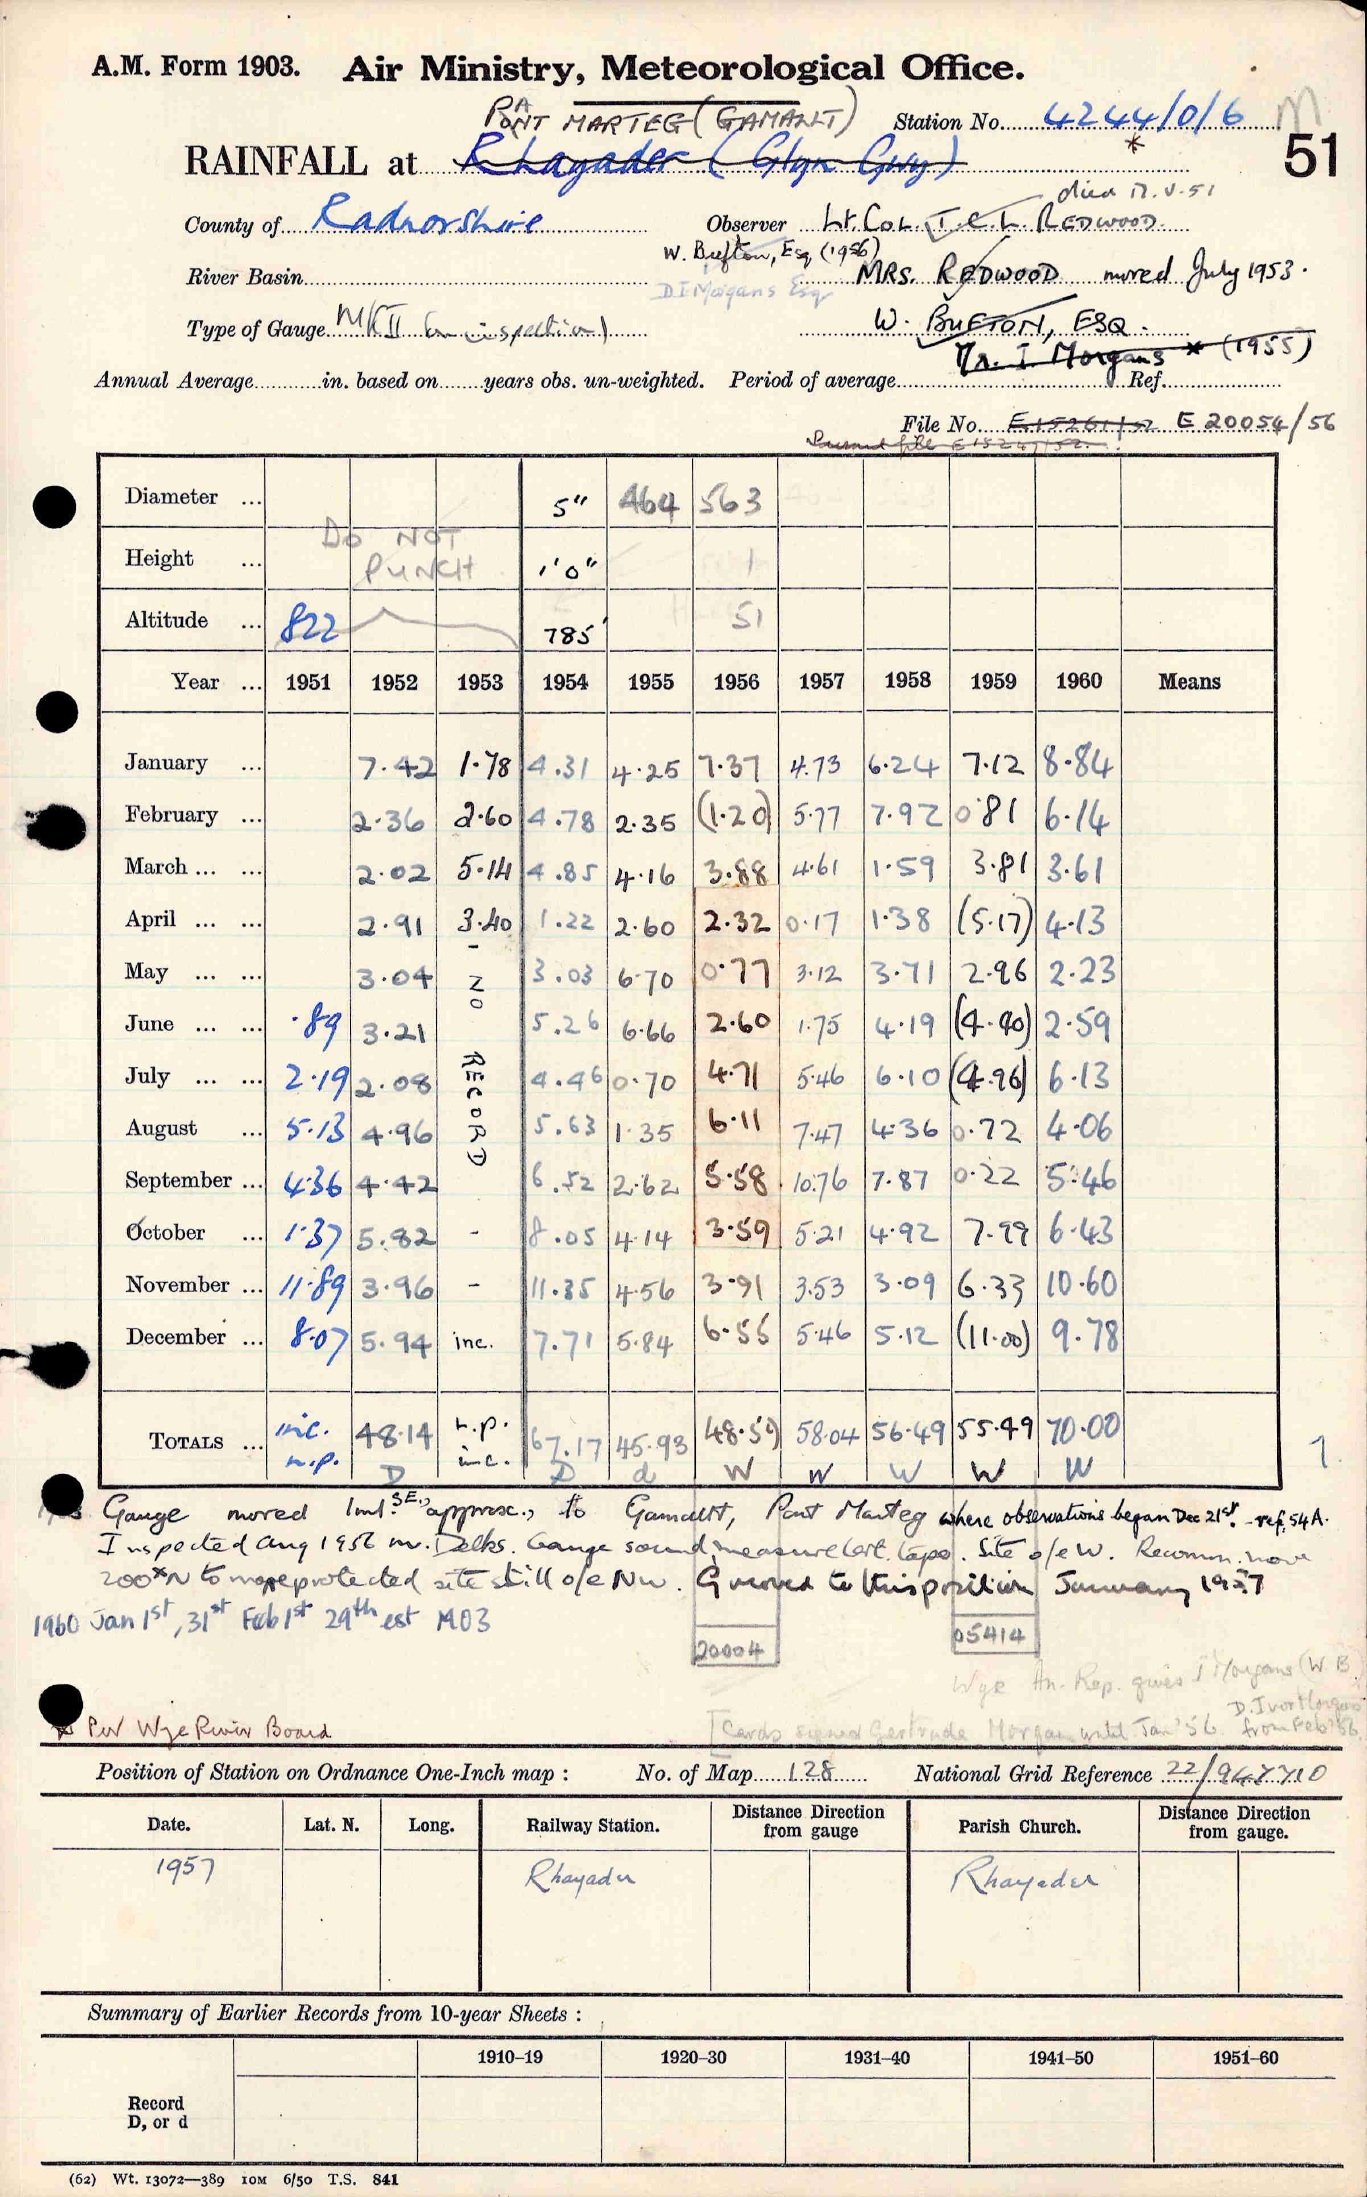 A.M. Form 1903. Air Ministry, Meteorological Office.
PANT MARTEG (GAMALLT) Station No. 4244/0/6 M
RAINFALL at Rhayader (Glyn Gwy) * 51
died 17.V.51
County of Radnorshire Observer Lt. Col. I.C.L. REDWOOD
W. Bufton, Esq (1956)
River Basin MRS. REDWOOD moved July 1953.
D I Morgans Esq
Type of Gauge MKII (on inspection) W. BUFTON, ESQ.
Mr. I. Morgans * (1955)
Annual Average in. based on years obs. un-weighted. Period of average Ref.
File No. E 15261/52 E 20054/56
Diameter ... 5" 464 563
DO NOT PUNCH
Height ... 1'0" 1
Altitude ... 822 785' 51
Year ... 1951 1952 1953 1954 1955 1956 1957 1958 1959 1960 Means
January ... 7.42 1.78 4.31 4.25 7.37 4.73 6.24 7.12 8.84
February ... 2.36 2.60 4.78 2.35 (1.20) 5.77 7.92 0.81 6.14
March ... ... 2.02 5.14 4.85 4.16 3.88 4.61 1.59 3.81 3.61
April ... ... 2.91 3.40 1.22 2.60 2.32 0.17 1.38 (5.17) 4.13
May ... ... 3.04 - 3.03 6.70 0.77 3.12 3.71 2.96 2.23
June ... ... .89 3.21 NO RECORD 5.26 6.66 2.60 1.75 4.19 (4.40) 2.59
July ... ... 2.19 2.08 4.46 0.70 4.71 5.46 6.10 (4.96) 6.13
August ... 5.13 4.96 5.63 1.35 6.11 7.47 4.36 0.72 4.06
September ... 4.36 4.42 6.52 2.62 5.58 10.76 7.87 0.22 5.46
October ... 1.37 5.82 - 8.05 4.14 3.59 5.21 4.92 7.99 6.43
November ... 11.89 3.96 - 11.35 4.56 3.91 3.53 3.09 6.33 10.60
December ... 8.07 5.94 inc. 7.71 5.84 6.55 5.46 5.12 (11.00) 9.78
TOTALS ... inc. n.p. 48.14 D n.p. inc. 67.17 D 45.93 d 48.59 W 58.04 W 56.49 W 55.49 W 70.00 W
1
Gauge moved 1ml. S.E. approx., to Gamallt, Pant Marteg where observations began Dec 21st. - ref. 54A.
Inspected Aug 1956 Mr. Delks. Gauge sound, measure cert. taper. Site o/e W. Recomm. move
200xN to more protected site still o/e NW. G moved to this position January 1957
1960 Jan 1st, 31st Feb 1st 29th est 1903
20004 05414
Wye An. Rep. gives I Morgans (W B.
D. Ivor Morgans
* Per Wye River Board
[Cards signed Gertrude Morgan until Jan '56. from Feb '56.
Position of Station on Ordnance One-Inch map : No. of Map 128 National Grid Reference 22/947710
Date. Lat. N. Long. Railway Station. Distance Direction from gauge Parish Church. Distance Direction from gauge.
1957 Rhayader Rhayader
Summary of Earlier Records from 10-year Sheets :
1910-19 1920-30 1931-40 1941-50 1951-60
Record
D, or d
(62) Wt. 13072—389 10M 6/50 T.S. 841